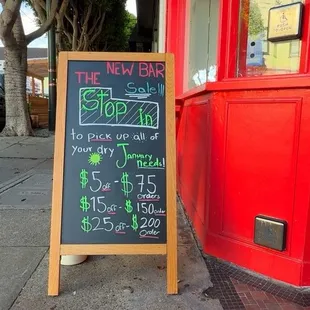 THE NEW BAR
Sale!!!
Stop in
to pick up all of
your dry January
needs!
$5 off - $75 orders
$15 off - $150 order
$25 off - $200 order